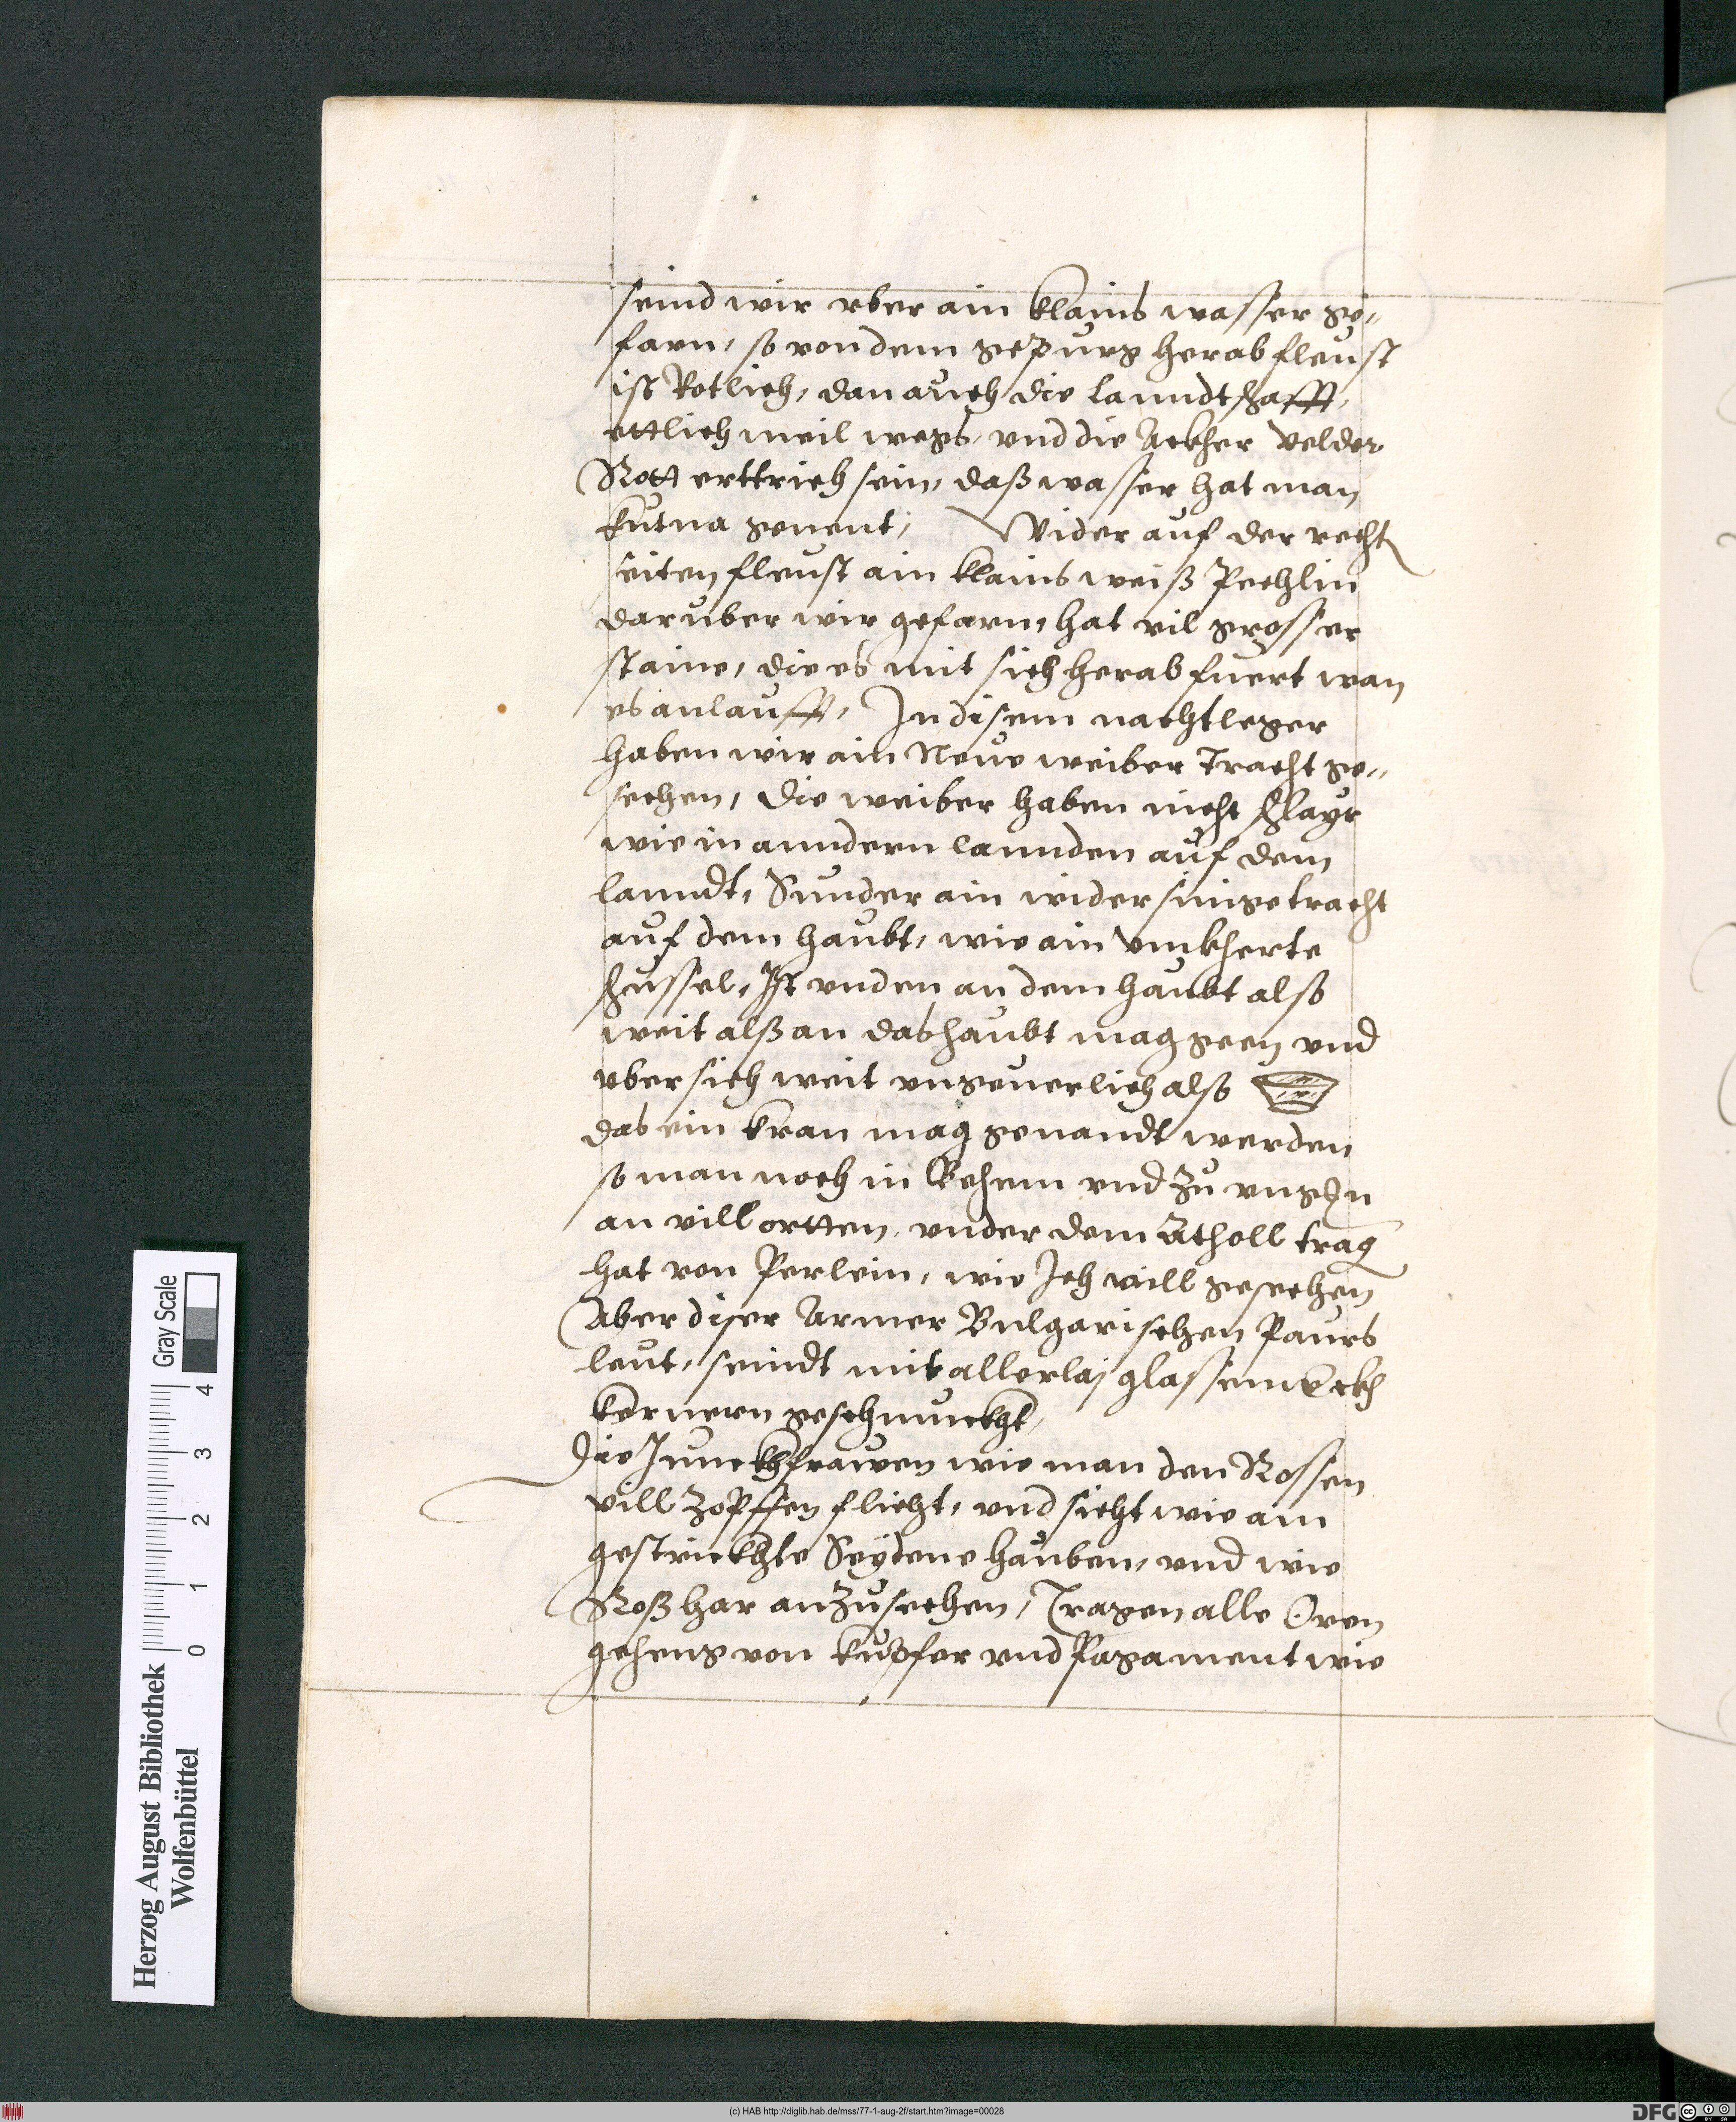 seind wir vber ain klains wasser ge„
farn, so von dem gepurg herab fleust
ist Rotlich, dan auch die lanndtschafft,
ettlich meil wegs, vnd die Ackher velder
Rott erttrich sein, daß wasser hat man
kutna genent, Wider auf der recht
seiten fleust ain klains weiß Pechlin
daruber wir gefarn, hat vil grosser
staine, die es mit sich herab fuert wan
es anlaufft, In disem nachtleger
haben wir ain Neue weiber Tracht ge„
sechen, die weiber haben nicht schlayr
wie in anndern lannden auf dem
lanndt, Sunder ain widersinge tracht
auf dem haubt, wie ain vmkherte
schussel, Ist vnden an dem haubt also
weit alß an das haubt mag geen vnd
vbersich weit vngeuerlich also
das ein kran mag genandt werden
so man noch in Behem vnd zu
an vill ortten, vnder dem trag
hat von Perlein, wie Ich vill gesechen
Aber diser Armer Bulgarischen Paurs
leut, seindt mit allerlaj glassen
kornern geschmuckht,
Die Junckhfrawen wie man den Rossen
vill Zopffen flicht, vnd sicht wie ain
gestrickhte Seydene hauben, vnd wie
Roßhar anzusechen, Tragen alle Oren
geheng von kupfer vnd Pagament wie
Herzog August Bibliothek
Wolfenbüttel
Gray Scale
0 1 2 3 4
(c) HAB http://diglib.hab.de/mss/77-1-aug-2f/start.htm?image=00028
DFG